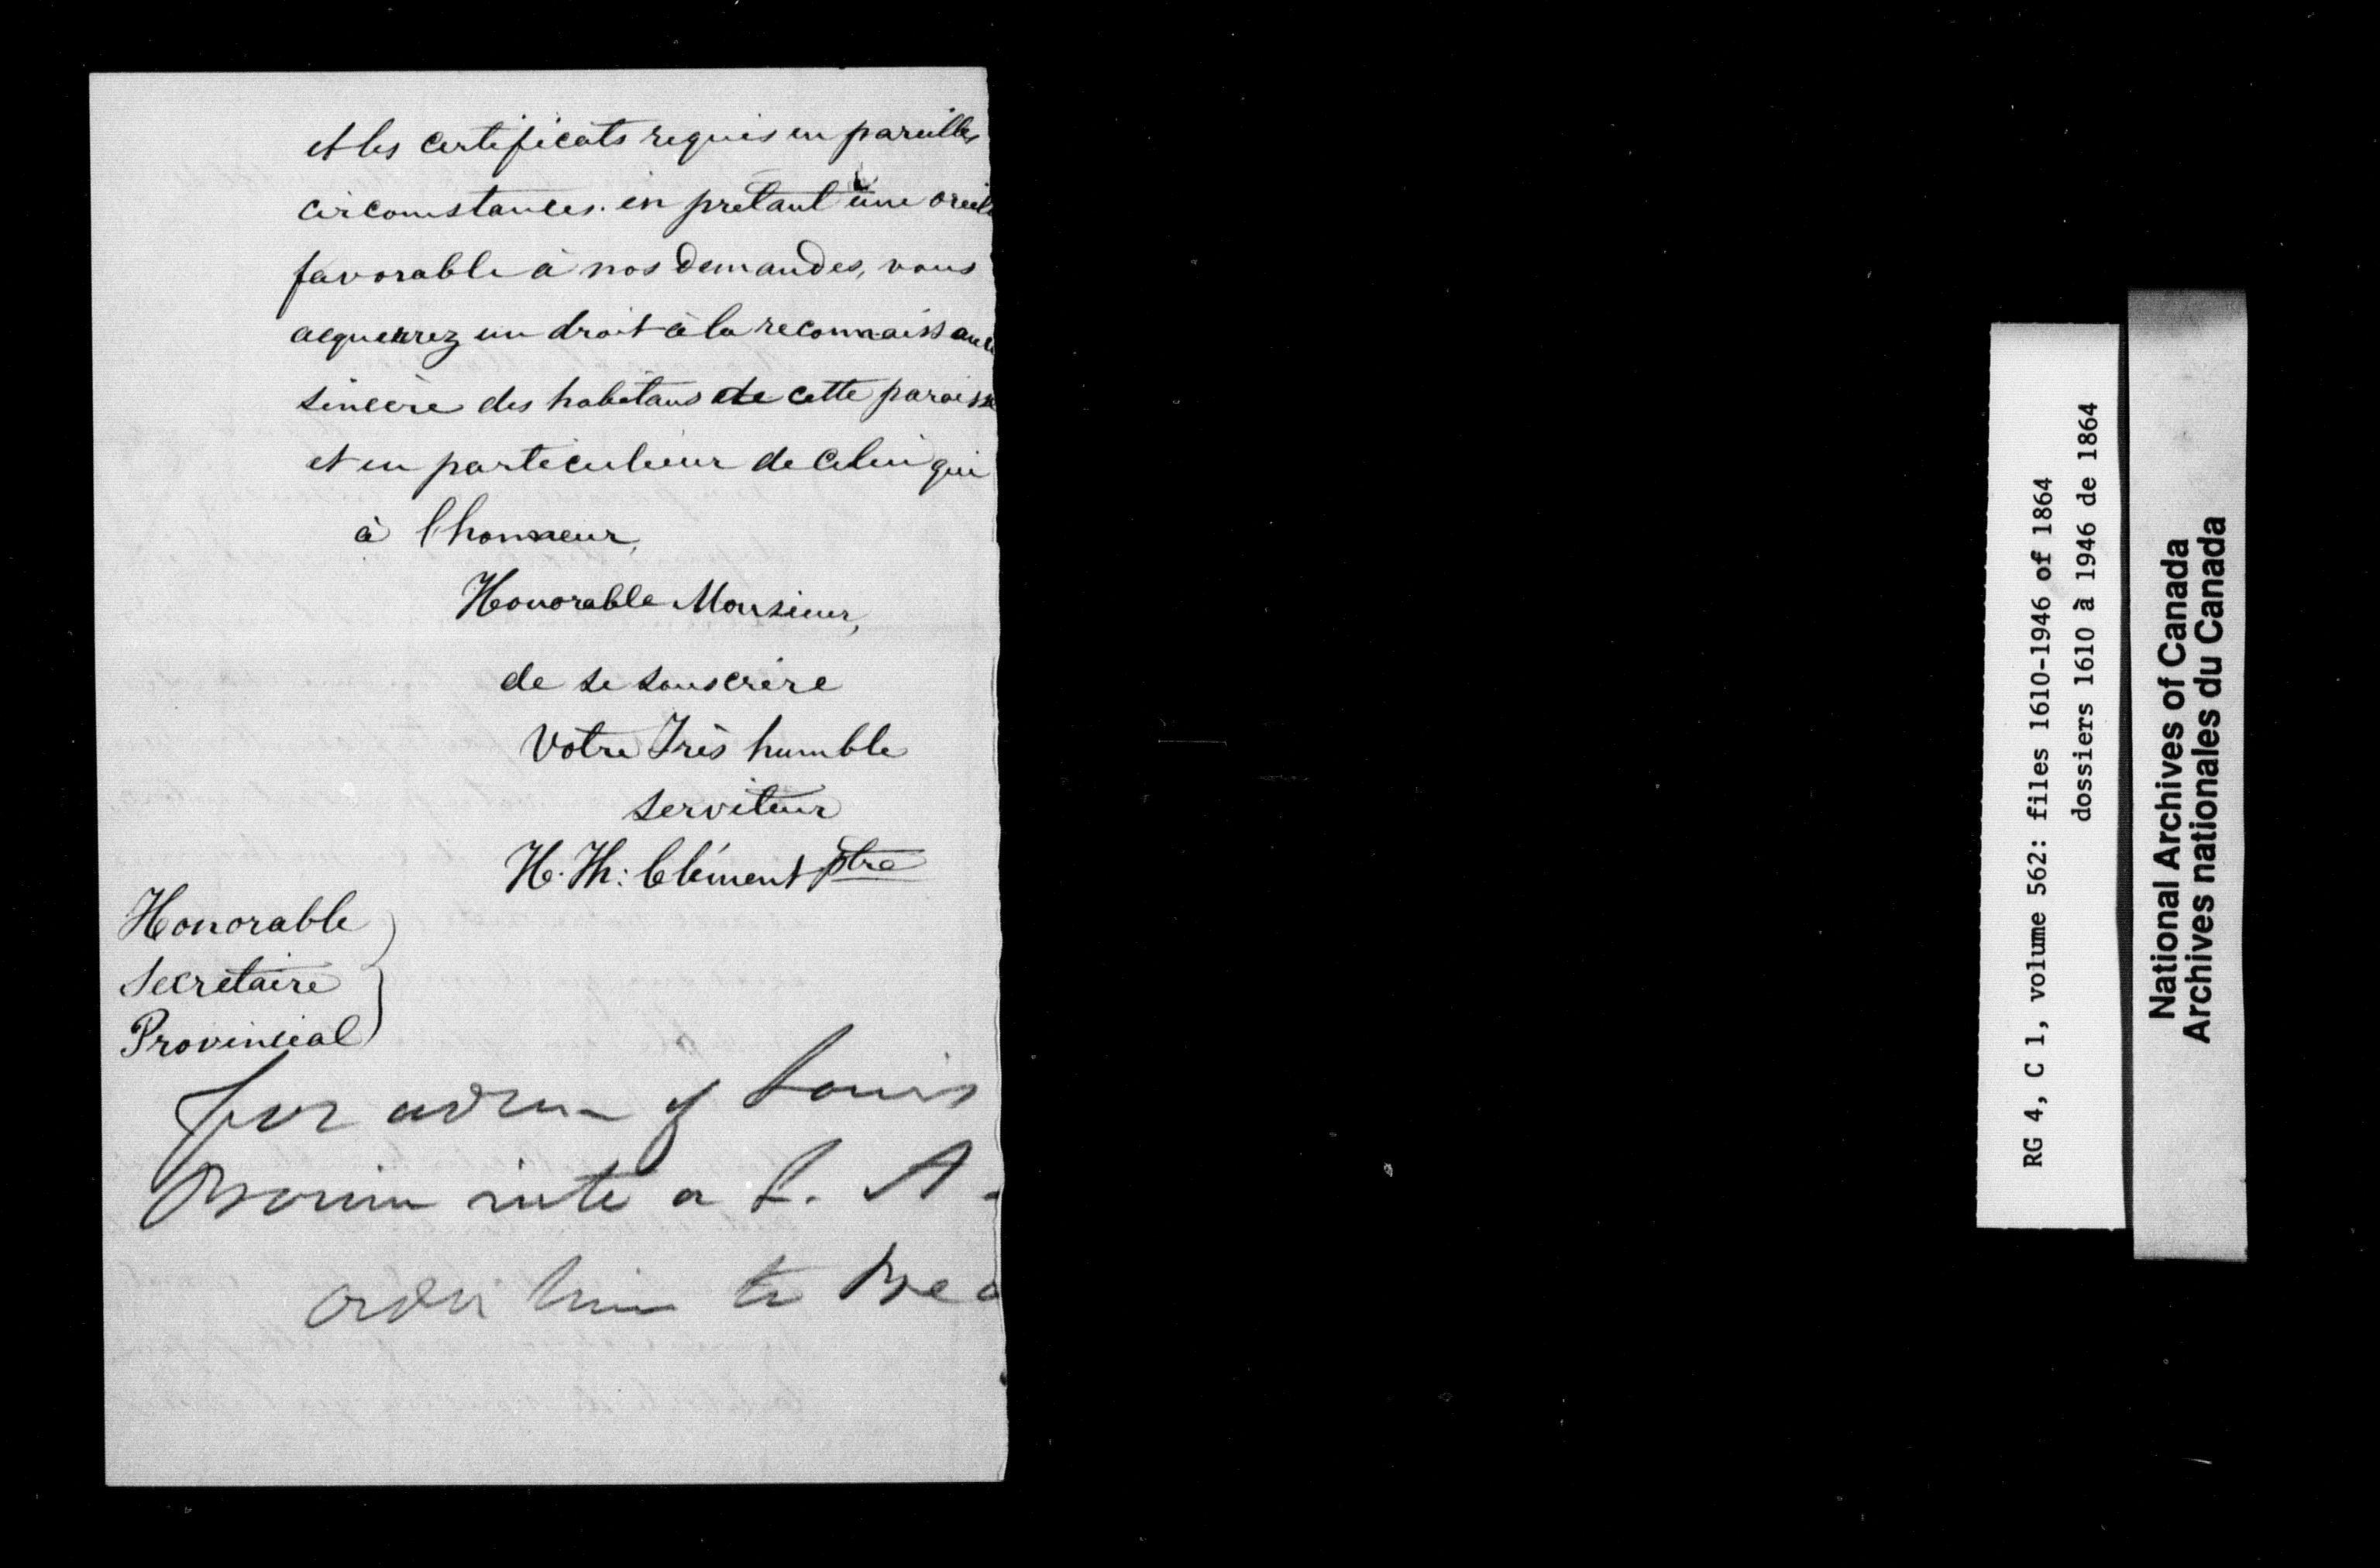 et les certificats requis en pareilles
circomstances. en prêtant une oreille
favorable à nos demandes, vous
acquerrez un droit à la reconnaissance
sincère des habitans de cette paroisse
et en particulieur de celui qui
à l'honneur,
Honorable Monsieur,
de se souscrire
Votre Très humble
serviteur
H. Th: Clément ptre
Honorable
Secretaire
Provincial
for adm of Louis
Morin into a L. A.
order him to Bea
RG 4, C 1, volume 562: files 1610-1946 of 1864
dossiers 1610 à 1946 de 1864
National Archives of Canada
Archives nationales du Canada